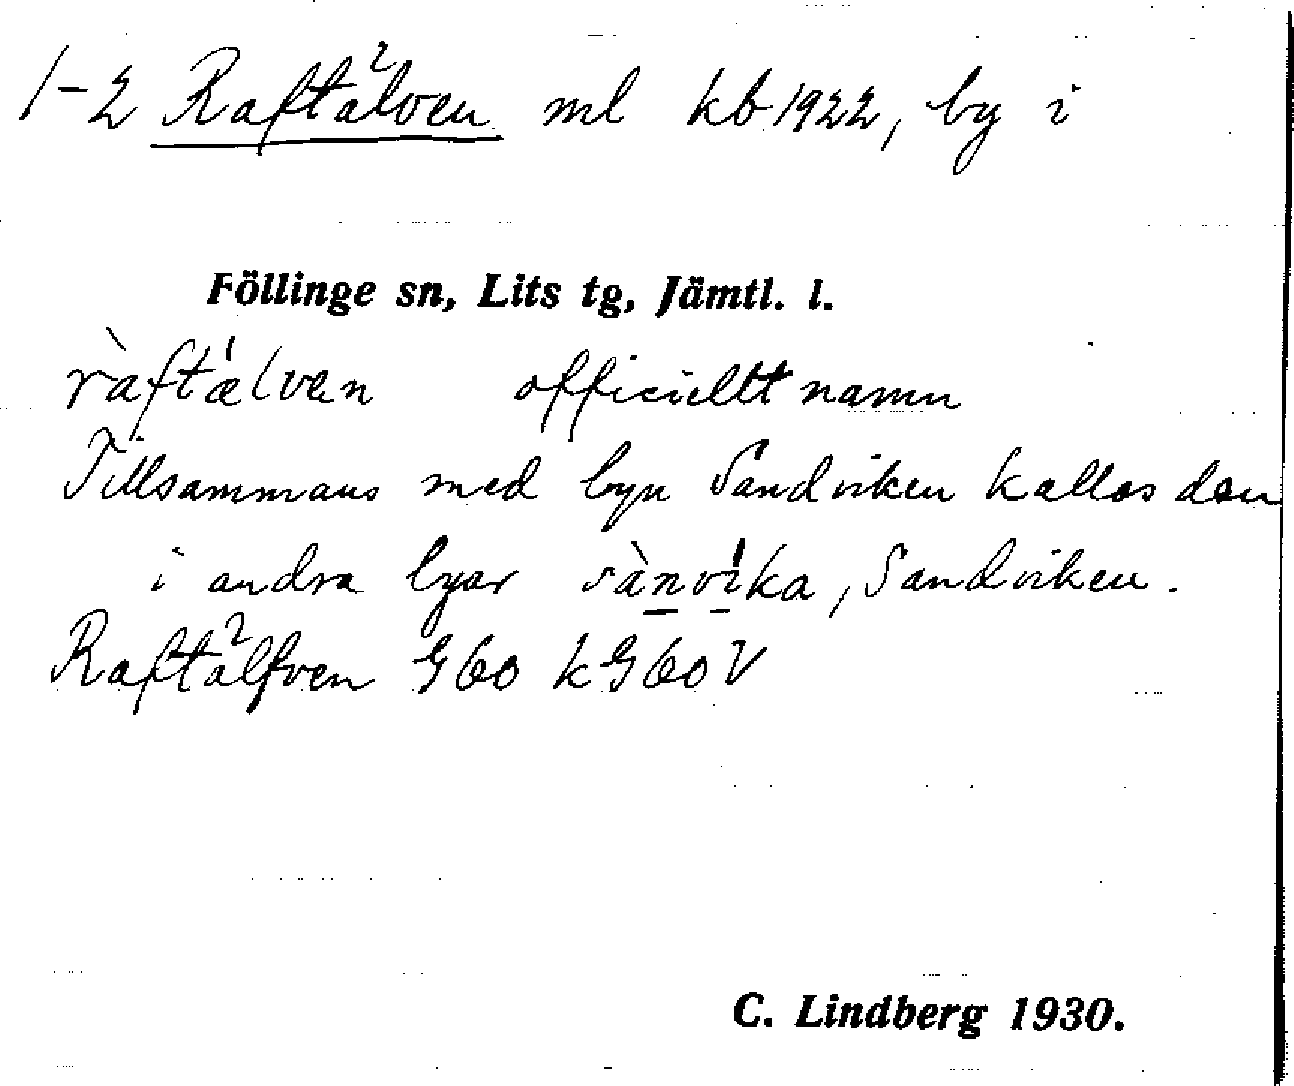 1-2 Raftälven ml kb 1922, by i
Föllinge sn, Lits tg, Jämtl. l.
ràftǽlven officiellt namn
Tillsammans med byn Sandviken kallas den
i andra byar sànvíka, Sandviken.
Raftälfven G60 kG60V
C. Lindberg 1930.